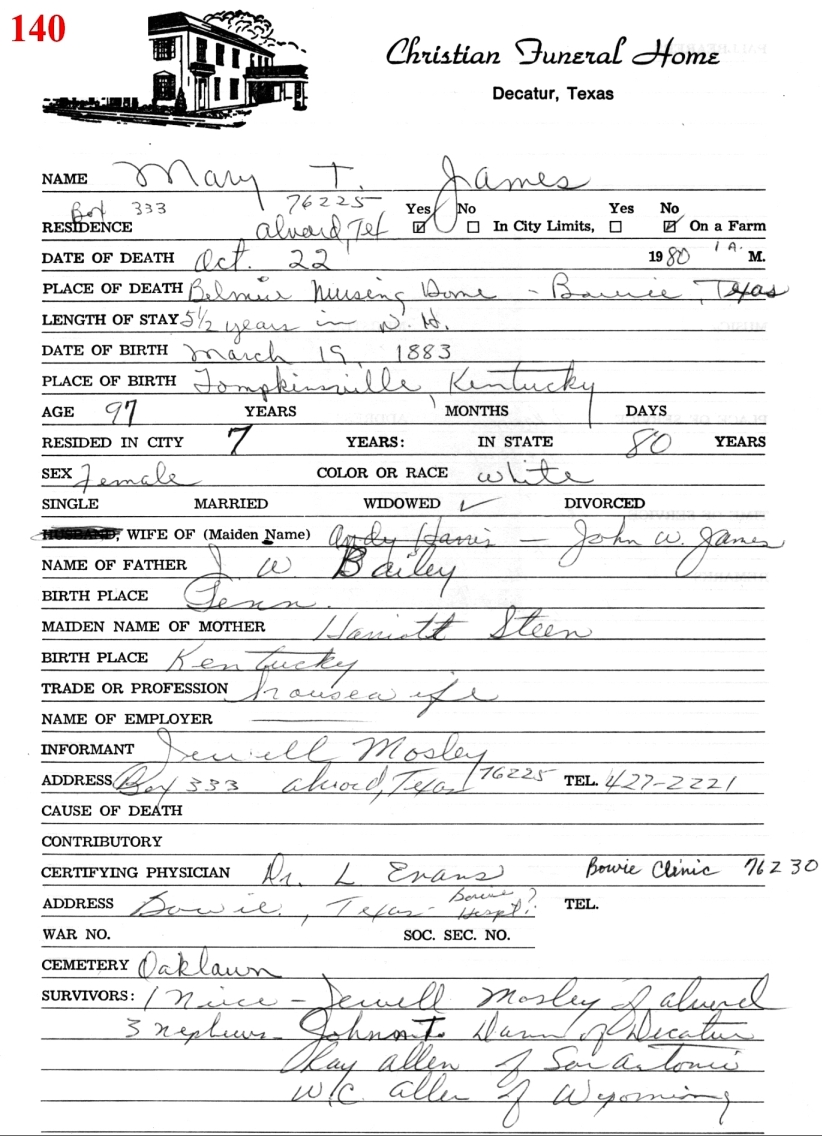 140
Christian Funeral Home
Decatur, Texas
NAME Mary T. James
Box 333 76225 Yes No Yes No
RESIDENCE Alvord, Tex ☑ ☐ In City Limits, ☐ ☑ On a Farm
DATE OF DEATH Oct. 22 1980 1 A. M.
PLACE OF DEATH Nursing Home - Bowie, Texas
LENGTH OF STAY 5 1/2 years in N. H.
DATE OF BIRTH March 19, 1883
PLACE OF BIRTH Tompkinsville, Kentucky
AGE 97 YEARS MONTHS DAYS
RESIDED IN CITY 7 YEARS: IN STATE 80 YEARS
SEX Female COLOR OR RACE white
SINGLE MARRIED WIDOWED ✓ DIVORCED
HUSBAND, WIFE OF (Maiden Name) Andy Harris - John W. James
NAME OF FATHER J. W. Bailey
BIRTH PLACE Tenn.
MAIDEN NAME OF MOTHER Harriott Steen
BIRTH PLACE Kentucky
TRADE OR PROFESSION housewife
NAME OF EMPLOYER
INFORMANT Jewell Mosley
ADDRESS Box 333 Alvord, Texas 76225 TEL. 427-2221
CAUSE OF DEATH
CONTRIBUTORY
CERTIFYING PHYSICIAN Dr. L Evans Bowie Clinic 76230
ADDRESS Bowie, Texas - Bowie Hospt? TEL.
WAR NO. SOC. SEC. NO.
CEMETERY Oaklawn
SURVIVORS: 1 Niece - Jewell Mosley of Alvord
3 nephews - T. of Decatur
Ray Allen of San Antonio
W.C. Allen of Wyoming